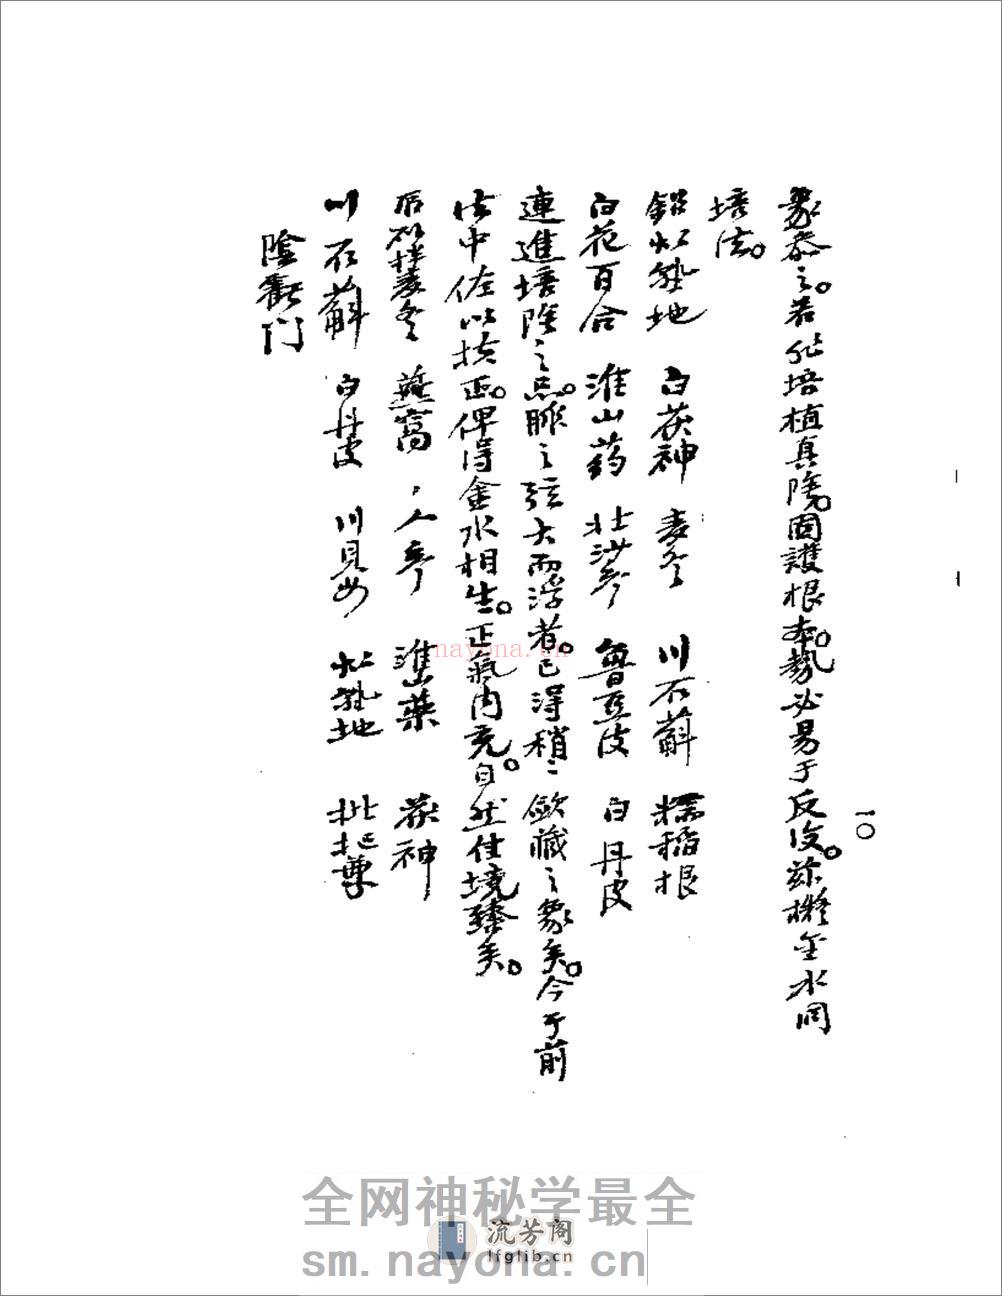 象忝之。若非培植真陰。固護根本。勢必易于反復。茲擬金水同
培法。
大熟地 白茯神 麦冬 川石斛 糯稻根
白花百合 淮山药 北沙參 魯豆皮 白丹皮
連進培陰之品。脈之弦大而浮者。已得稍：斂藏之象矣。今于前
法中佐以扶正。俾得金水相生。正氣內充。自然佳境臻矣。
麦冬 燕窩 人參 淮山藥 茯神
川石斛 白丹皮 川貝母 大熟地 枇杷葉
陰虧门
一〇
nayona.cn
全网神秘学最全
流芳阁
lfglib.cn
sm.nayona.cn